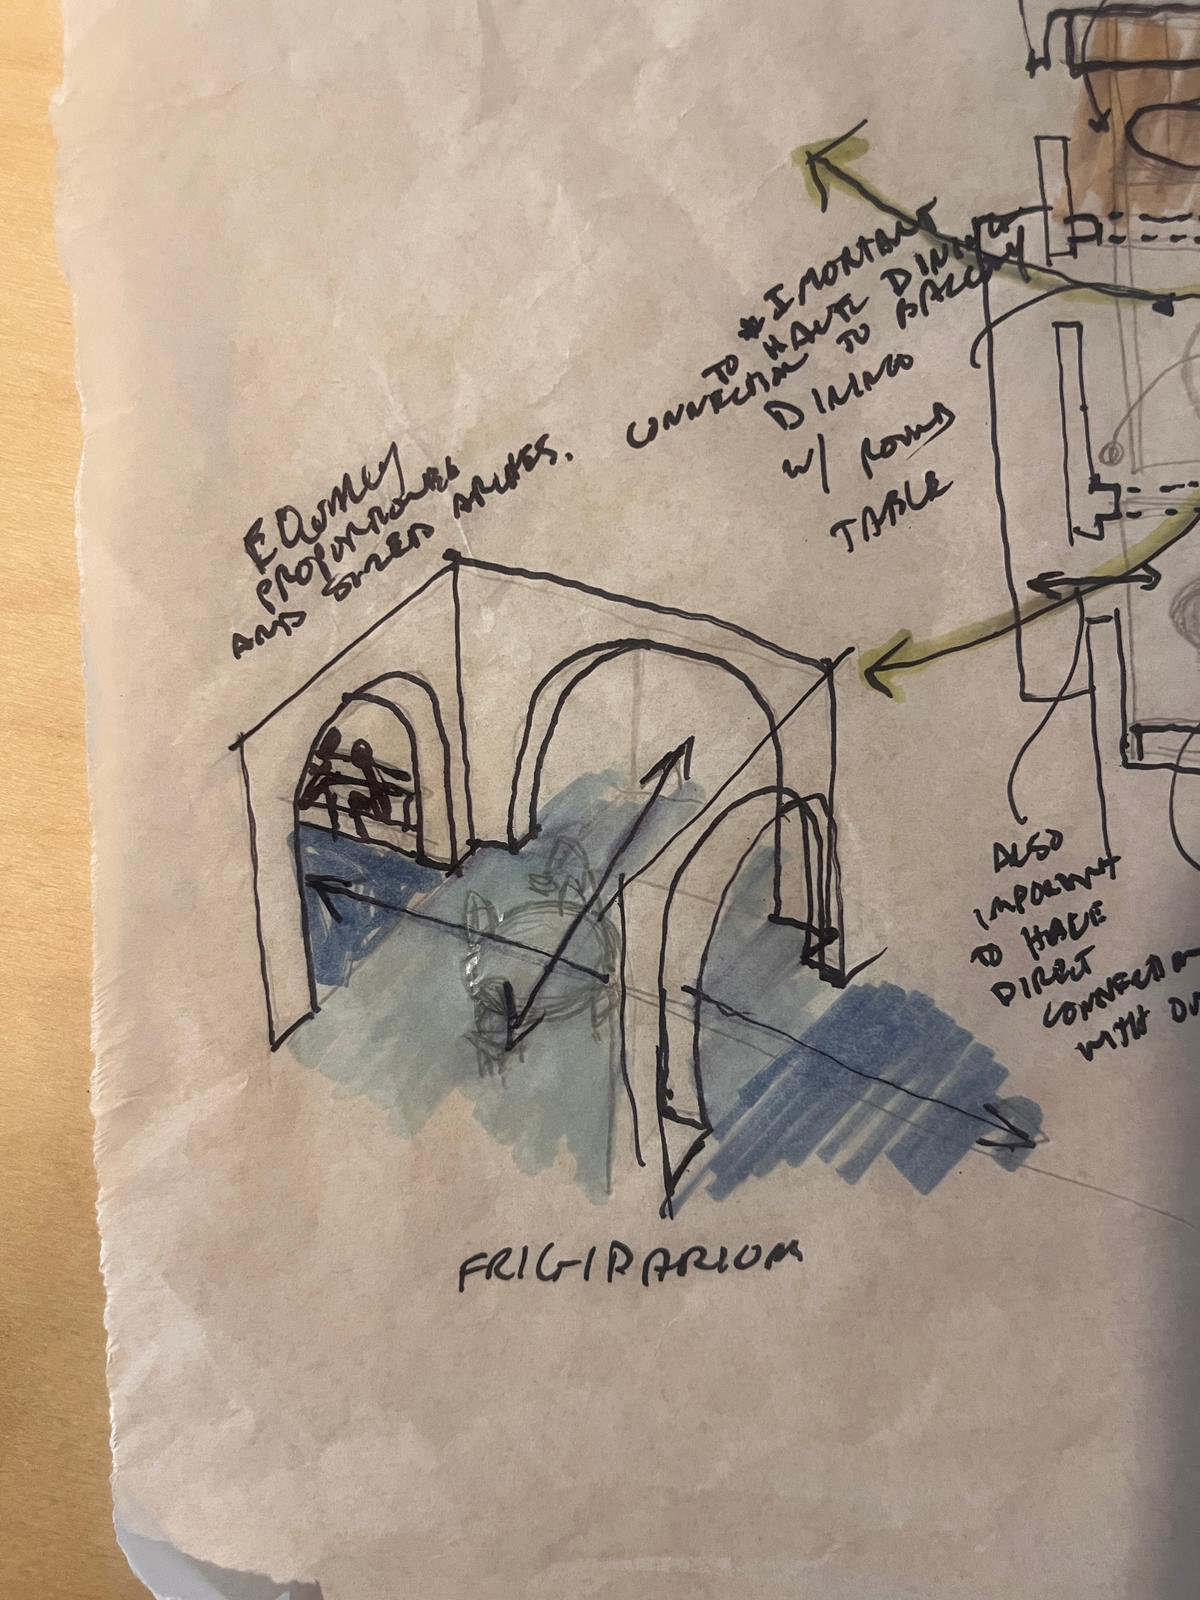 * IMORTANT
TO HAVE DINING
CONNECTION TO BALCONY
DINING
W/ ROUND
TABLE
EQUALLY
PROPORTIONED
AND SIZED ARCHES.
ALSO
IMPORTANT
TO HAVE
DIRECT
CONNECTION
WITH
FRIGIDARIUM